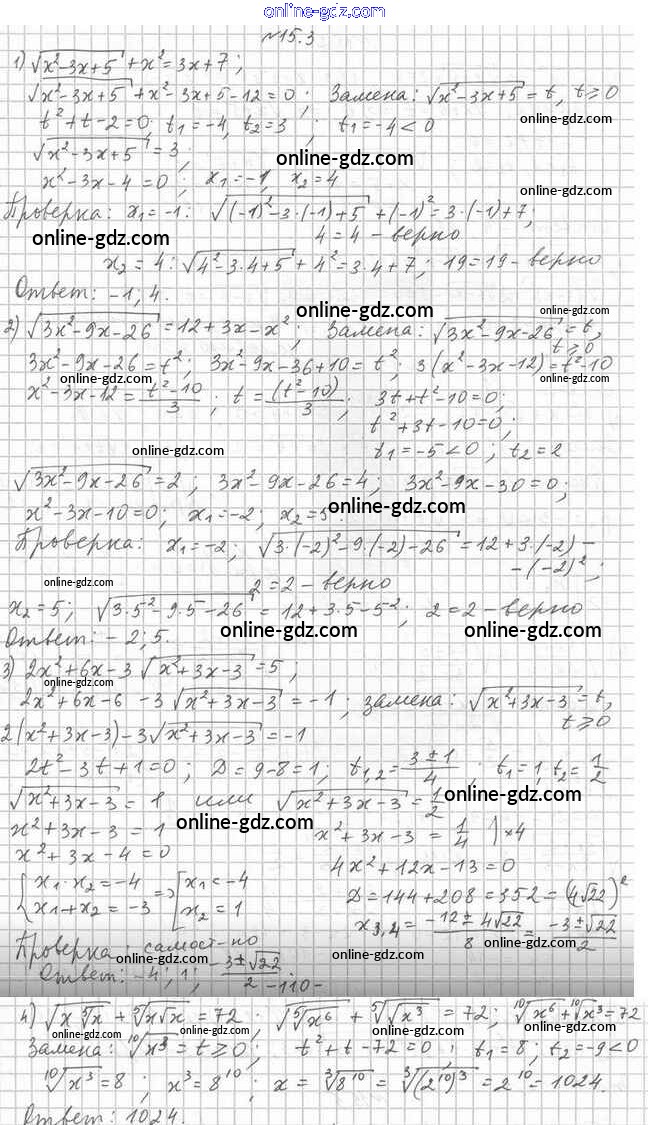 online-gdz.com
№15.3
1) √(x²-3x+5) + x² = 3x+7;
online-gdz.com
√(x²-3x+5) + x²-3x+5-12=0; Замена: √(x²-3x+5) = t, t≥0
t²+t-2=0; t₁=-4, t₂=3; t₁=-4<0
online-gdz.com
√(x²-3x+5) = 3;
online-gdz.com
x²-3x-4=0; x₁=-1, x₂=4
online-gdz.com
Проверка: x₁=-1: √((-1)²-3·(-1)+5) + (-1)² = 3·(-1)+7;
online-gdz.com
4=4 - верно
x₂=4: √(4²-3·4+5) + 4² = 3·4+7; 19=19 - верно
Ответ: -1; 4.
online-gdz.com
online-gdz.com
2) √(3x²-9x-26) = 12+3x-x²; Замена: √(3x²-9x-26) = t, t≥0
3x²-9x-26=t²; 3x²-9x-36+10=t²; 3(x²-3x-12)=t²-10
online-gdz.com
online-gdz.com
x²-3x-12=(t²-10)/3; t=(t²-10)/3; 3t+t²-10=0;
t²+3t-10=0;
online-gdz.com
t₁=-5<0; t₂=2
√(3x²-9x-26) = 2; 3x²-9x-26=4; 3x²-9x-30=0;
online-gdz.com
x²-3x-10=0; x₁=-2; x₂=5.
Проверка: x₁=-2; √(3·(-2)²-9·(-2)-26) = 12+3·(-2)-
-(-2)²;
online-gdz.com
2=2 - верно
online-gdz.com
x₂=5; √(3·5²-9·5-26) = 12+3·5-5²; 2=2 - верно
online-gdz.com
online-gdz.com
Ответ: -2; 5.
3) 2x²+6x-3√(x²+3x-3) = 5;
online-gdz.com
2x²+6x-6-3√(x²+3x-3) = -1; замена: √(x²+3x-3) = t,
t≥0
2(x²+3x-3)-3√(x²+3x-3) = -1
2t²-3t+1=0; D=9-8=1; t₁,₂=(3±1)/4; t₁=1, t₂=1/2
√(x²+3x-3) = 1 или √(x²+3x-3) = 1/2
online-gdz.com
online-gdz.com
x²+3x-3=1 x²+3x-3=1/4 )×4
x²+3x-4=0 4x²+12x-13=0
{x₁·x₂=-4 => [x₁=-4 D=144+208=352=(4√22)²
{x₁+x₂=-3 [x₂=1 x₃,₄=(-12±4√22)/8=(-3±√22)/2
Проверка: самост-но
online-gdz.com
Ответ: -4; 1; (-3±√22)/2
-110-
4) √(x⁵√x) + ⁵√(x√x) = 72; √(⁵√x⁶) + ⁵√(√x³) = 72; ¹⁰√x⁶ + ¹⁰√x³ = 72
online-gdz.com
online-gdz.com
online-gdz.com
online-gdz.com
Замена: ¹⁰√x³ = t≥0; t²+t-72=0; t₁=8; t₂=-9<0
online-gdz.com
¹⁰√x³ = 8; x³=8¹⁰; x=³√8¹⁰=³√(2¹⁰)³=2¹⁰=1024.
online-gdz.com
online-gdz.com
online-gdz.com
Ответ: 1024.